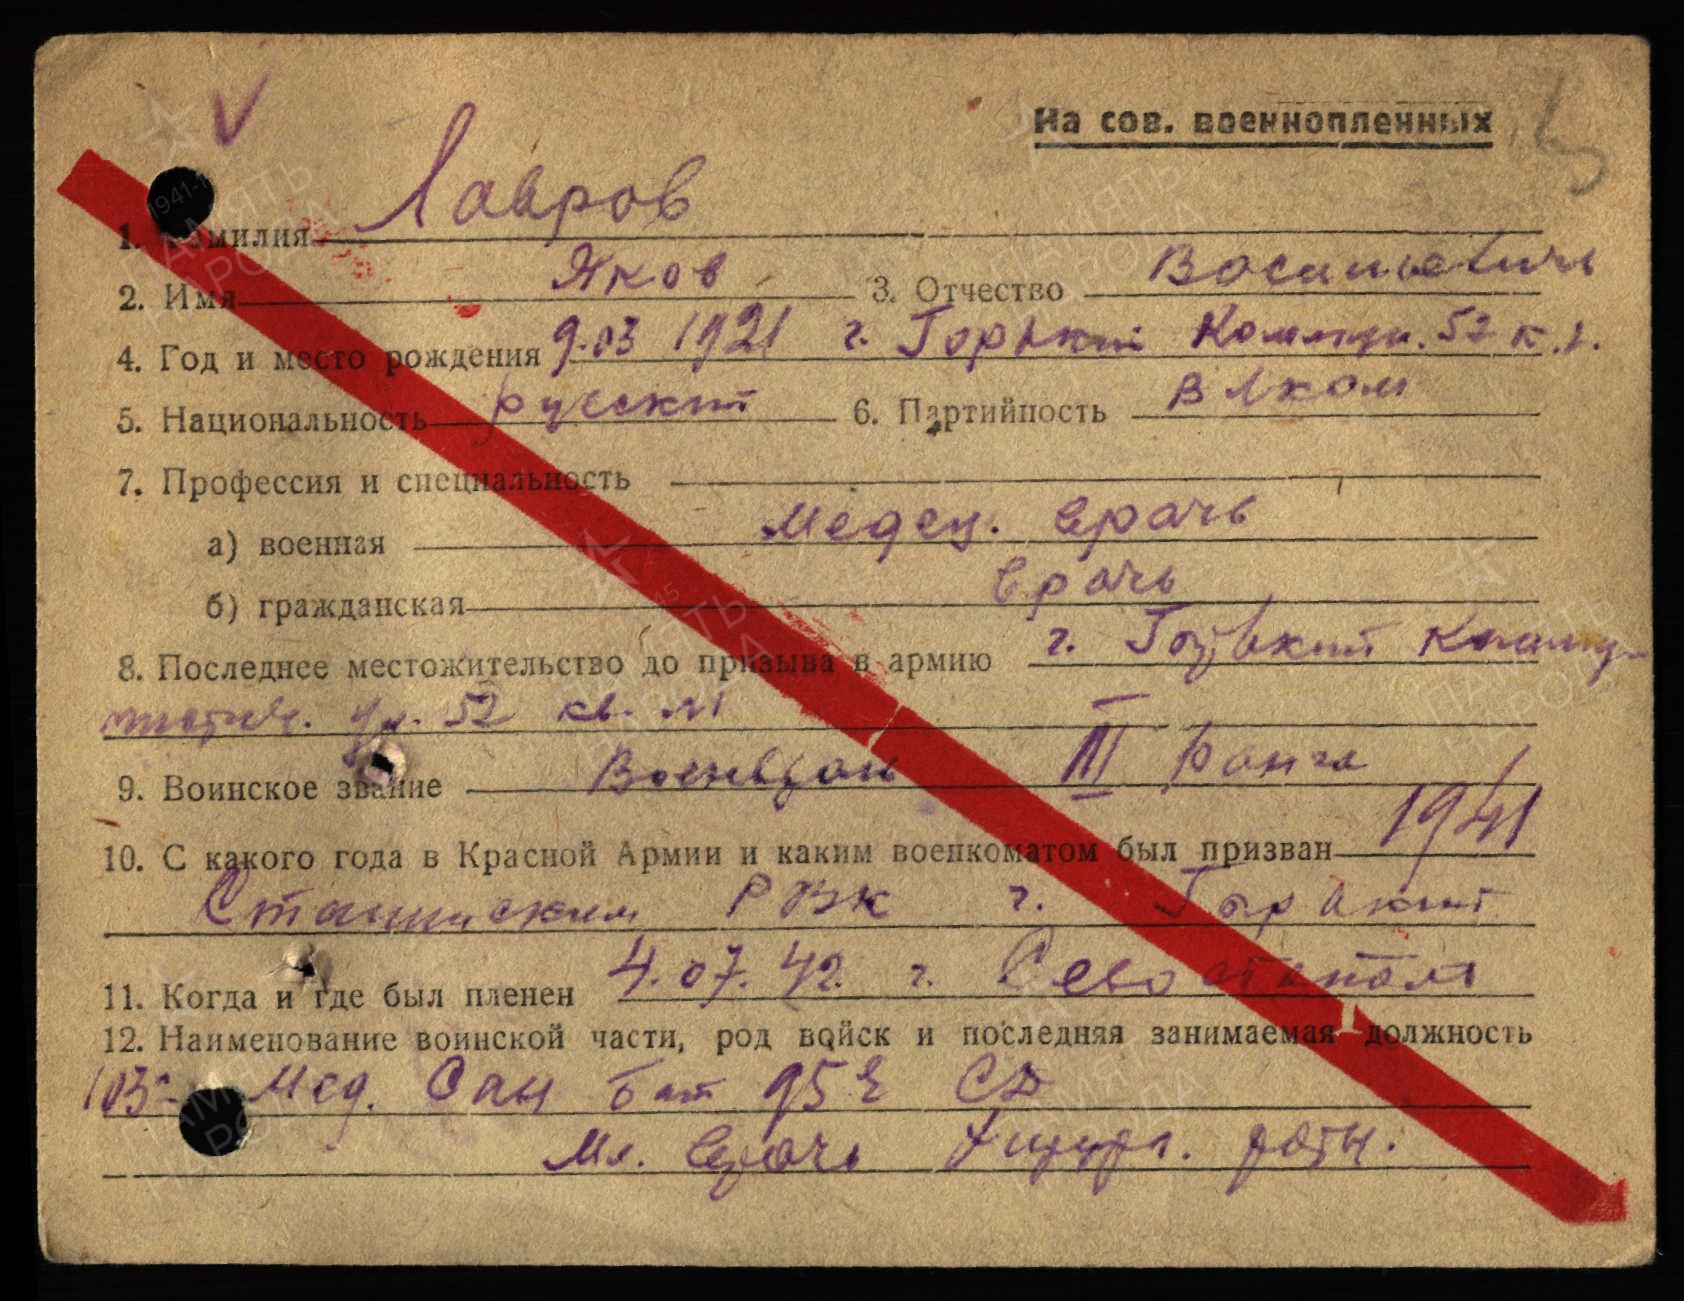 На сов. военнопленных
1. Фамилия Лавров
2. Имя Яков 3. Отчество Васильевичь
4. Год и место рождения 9.03 1921 г. Горький Коммун. 52 к.1.
5. Национальность русский 6. Партийность ВЛКСМ
7. Профессия и специальность
а) военная Медец. врачь
б) гражданская врачь
8. Последнее местожительство до призыва в армию г. Горький Комму-
нистич. ул. 52 кв. №1
9. Воинское звание Военврач III Ранга
10. С какого года в Красной Армии и каким военкоматом был призван 1941
РВК г. Горький
11. Когда и где был пленен 4.07.42 г. Севостополь
12. Наименование воинской части, род войск и последняя занимаемая должность
103- Мед. Сан бат 95й СД
Мл. врачь Хирург. роты.
1941-1945
ПАМЯТЬ
НАРОДА
ПАМЯТЬ
НАРОДА
ПАМЯТЬ
НАРОДА
ПАМЯТЬ
НАРОДА
ПАМЯТЬ
НАРОДА
ПАМЯТЬ
НАРОДА